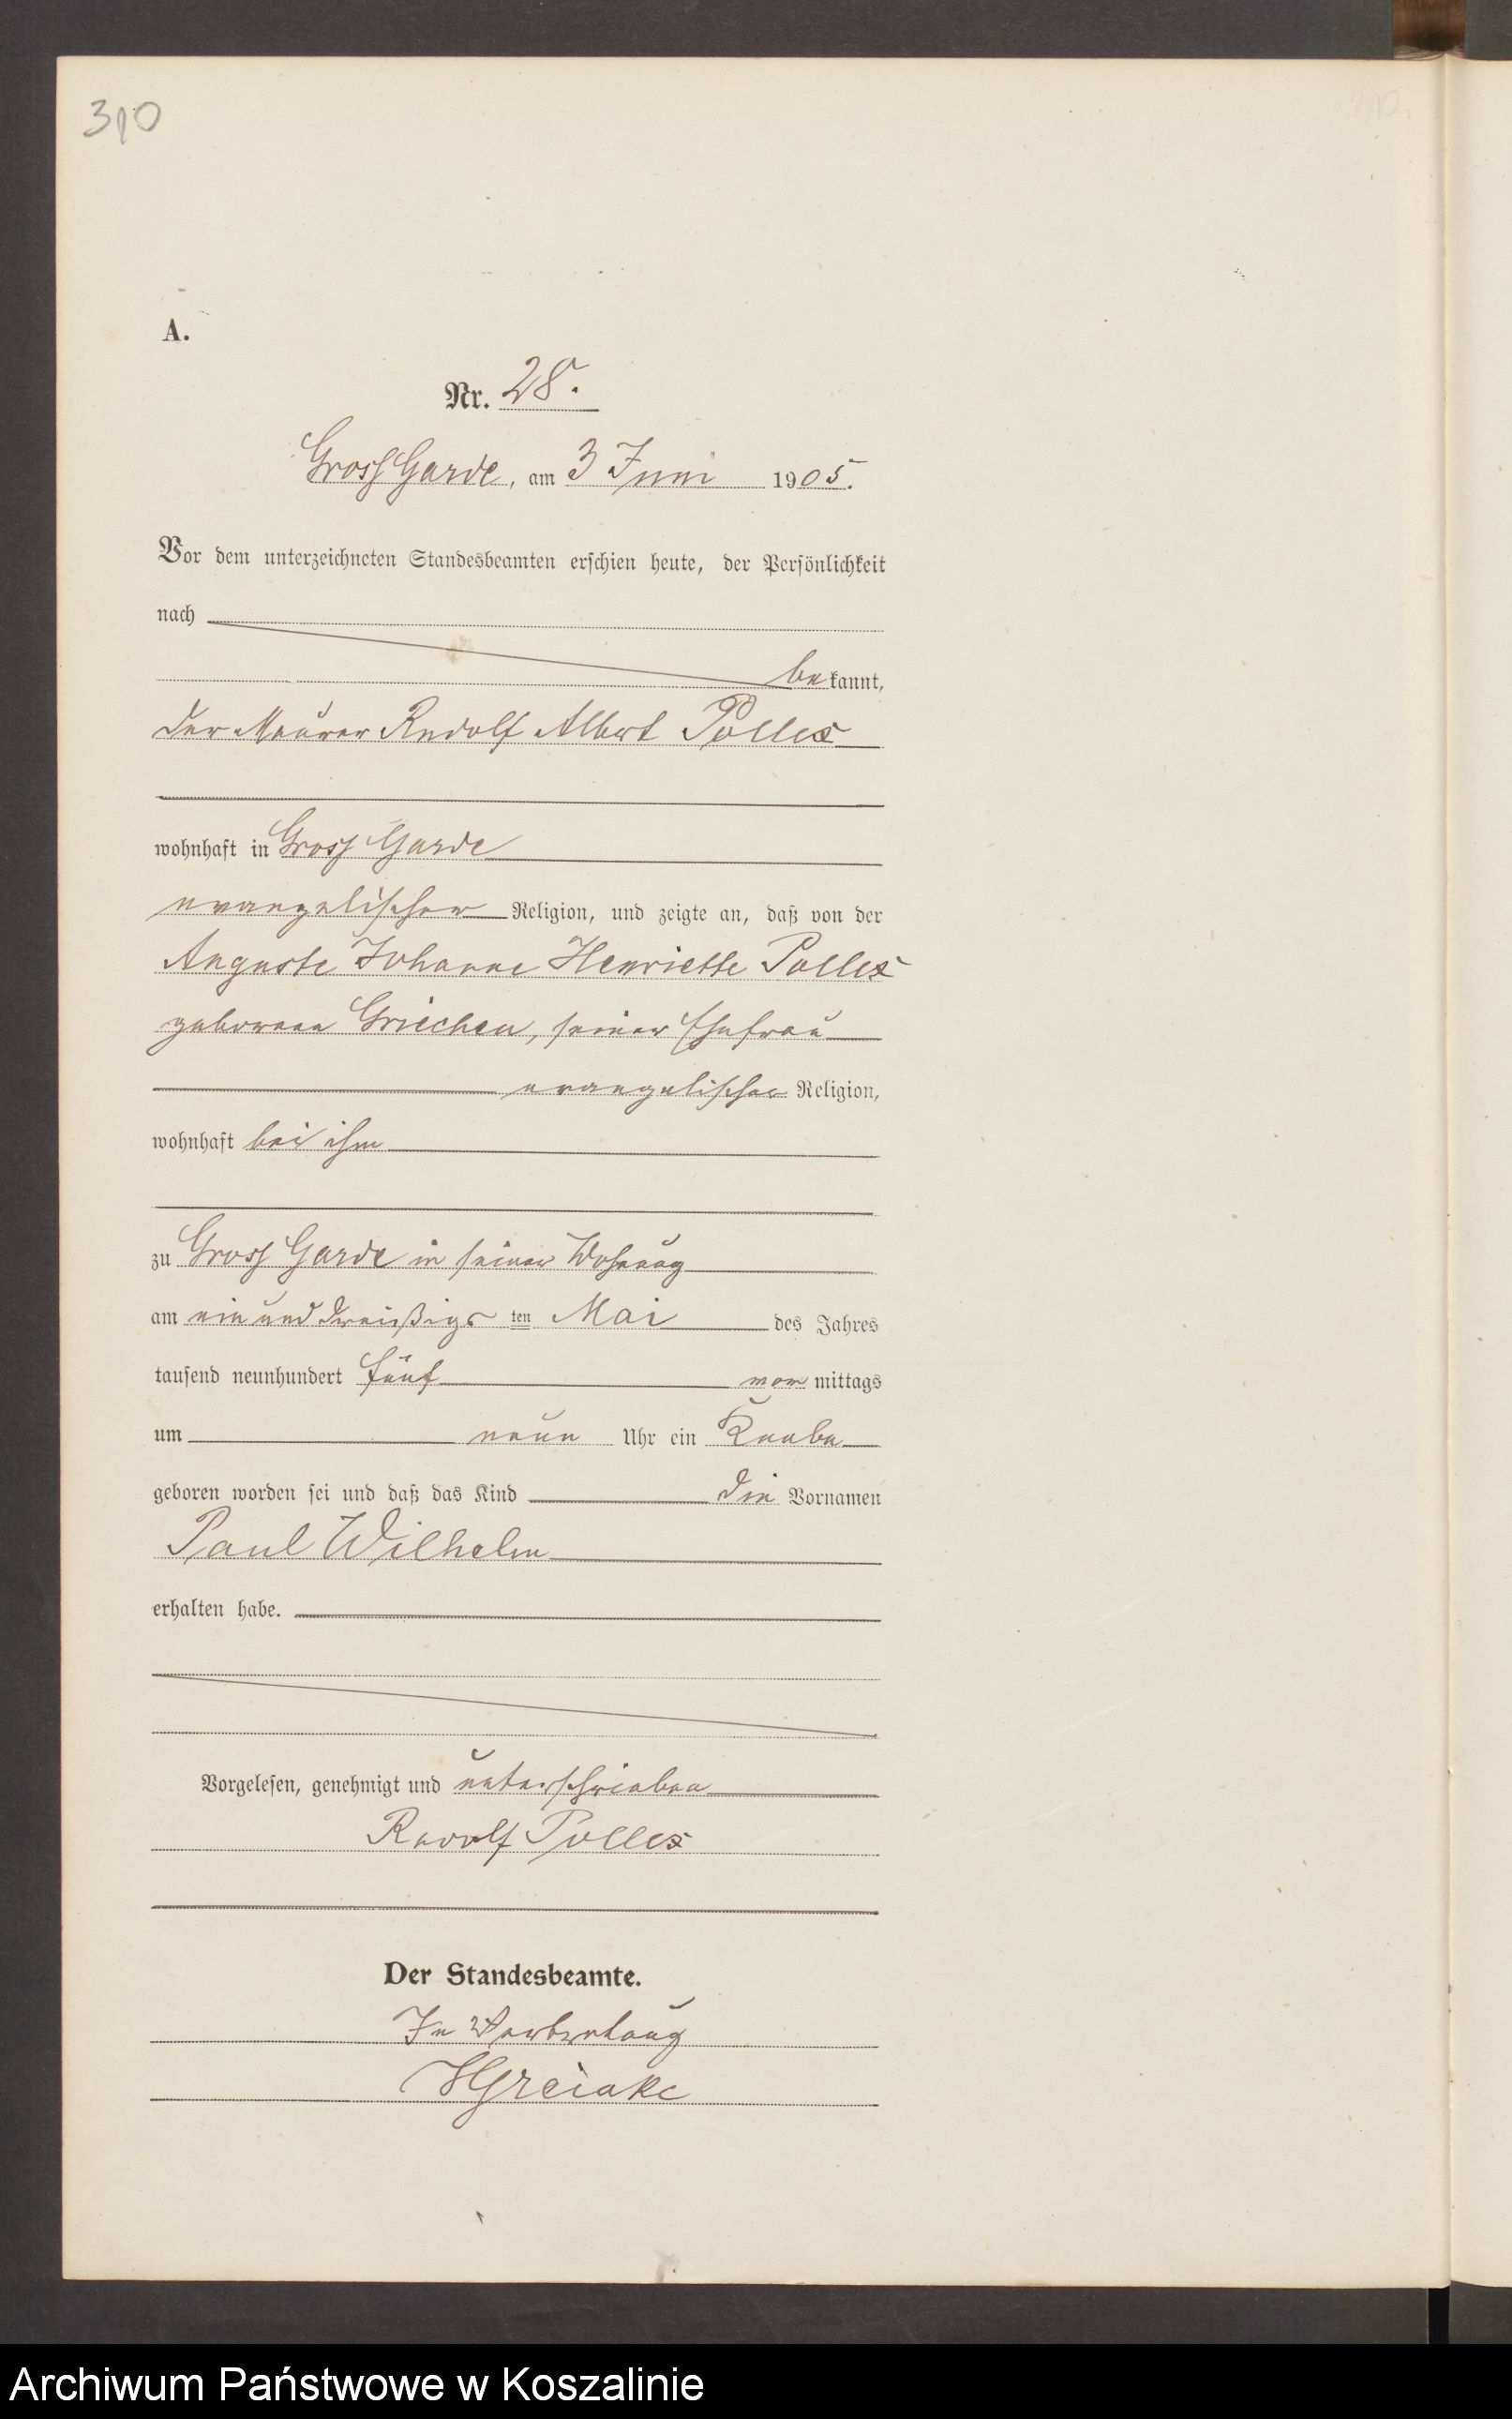 310
A.
Nr. 28.
Gross Garde, am 3 Juni 1905.
Vor dem unterzeichneten Standesbeamten erschien heute, der Persönlichkeit
nach
bekannt,
der Maurer Rudolf Albert Pollex
wohnhaft in Gross Garde
evangelischer Religion, und zeigte an, daß von der
Auguste Johanne Henriette Pollex
geborenen Griechen, seiner Ehefrau
evangelischer Religion,
wohnhaft bei ihm
zu Gross Garde in seiner Wohnung
am ein und dreißigsten Mai des Jahres
tausend neunhundert fünf vormittags
um neun Uhr ein Knabe
geboren worden sei und daß das Kind die Vornamen
Paul Wilhelm
erhalten habe.
Vorgelesen, genehmigt und unterschrieben
Rudolf Pollex
Der Standesbeamte.
In Vertretung
Archiwum Państwowe w Koszalinie